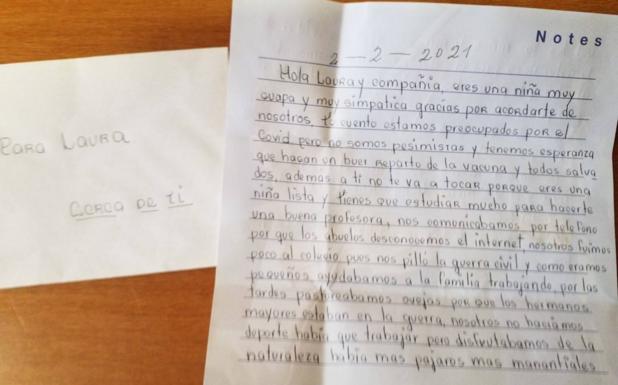 Para Laura
Cerca de ti
Notes
2-2-2021
Hola Lauray compañia, eres una niña muy
guapa y muy simpatica gracias por acordarte de
nosotros, te cuento estamos preocupados por el
Covid pero no somos pesimistas y tenemos esperanza
que hagan un buen reparto de la vacuna y todos salva
dos, ademas a ti no te va a tocar porque eres una
niña lista y tienes que estudiar mucho para hacerte
una buena profesora, nos comunicabamos por telefono
por que los abuelos desconocemos el internet, nosotros fuimos
poco al colegio pues nos pilló la guerra civil y como eramos
pequeños, ayudabamos a la familia trabajando, por las
tardes pastoreabamos ovejas por que los hermanos
mayores estaban en la guerra, nosotros no haciamos
deporte habia que trabajar pero disfrutabamos de la
naturaleza habia mas pajaros mas manantiales